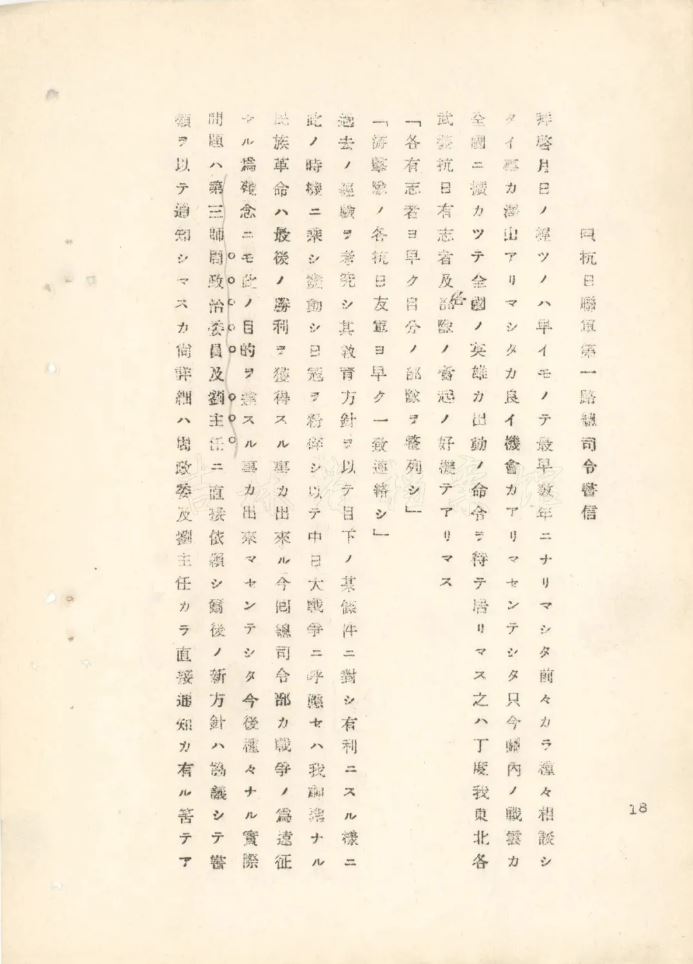 四抗日聯軍第一路總司令書信
拜啓月日ノ經ツノハ早イモノテ最早数年ニナリマシタ前々カラ種々相談シ
タイ事カ澤山アリマシタカ良イ機會カアリマセンテシタ只今嶺内ノ戰雲カ
全國ニ擴カツテ全國ノ英雄カ出動ノ命令ヲ待テ居リマス之ハ丁度我東北各
武裝抗日有志者及部隊ノ奮起ノ好機テアリマス
「各有志者ヨ早ク自分ノ部隊ヲ整列シ」
「游擊隊ノ各抗日友軍ヨ早ク一致連絡シ」
過去ノ經驗ヲ考究シ其敎育方針ヲ以テ目下ノ某條件ニ對シ有利ニスル樣ニ
此ノ時機ニ乘シ動シ日冠ヲ粉碎シ以テ中日大戰爭ニ呼應セハ我ナル
民族革命ハ最後ノ勝利ヲ獲得スル事カ出來ル今囘總司令部カ戰爭ノ爲遠征
セル爲殘念ニモ此ノ目的ヲ達スル事カ出來マセンテシタ今後種々ナル實際
問題ハ第三師周政治委員及劉主任ニ直接依賴シ爾後ノ新方針ハ協議シテ書
類ヲ以テ通知シマスカ尚詳細ハ周政委及劉主任カラ直接通知カ有ル筈テア
18
吉林省檔案館